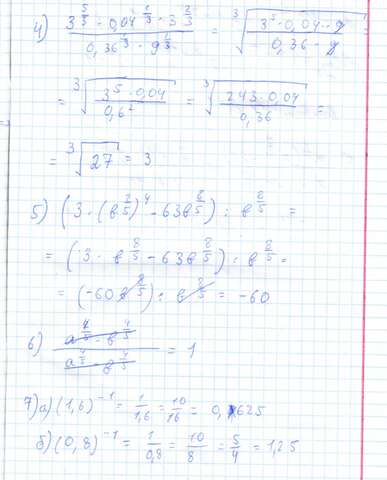 4) (3^(5/3) · 0,04^(1/3) · 3^(2/3)) / (0,36^(1/3) · 9^(1/3)) = ∛((3^5 · 0,04 · 9) / (0,36 · 9)) =
= ∛((3^5 · 0,04) / 0,6^2) = ∛((243 · 0,04) / 0,36) =
= ∛27 = 3
5) (3 · (в^(2/5))^4 - 63в^(8/5)) : в^(8/5) =
= (3 · в^(8/5) - 63в^(8/5)) : в^(8/5) =
= (-60в^(8/5)) : в^(8/5) = -60
6) = 1
7) а) (1,6)^(-1) = 1/1,6 = 10/16 = 0,625
б) (0,8)^(-1) = 1/0,8 = 10/8 = 5/4 = 1,25